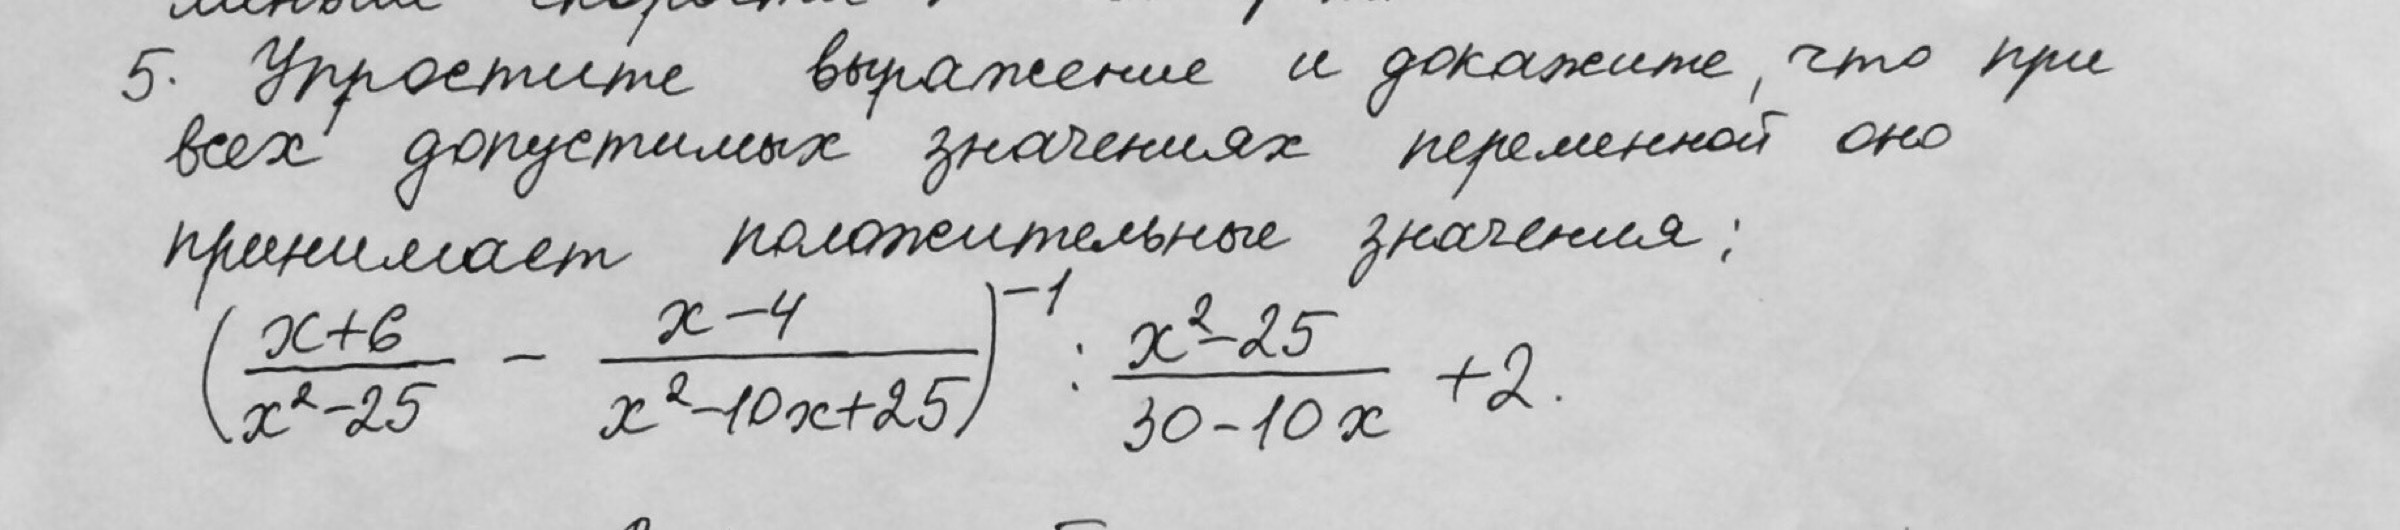 5. Упростите выражение и докажите, что при
всех допустимых значениях переменной оно
принимает положительные значения:
(x+6/x²-25 - x-4/x²-10x+25)⁻¹ : x²-25/30-10x +2.